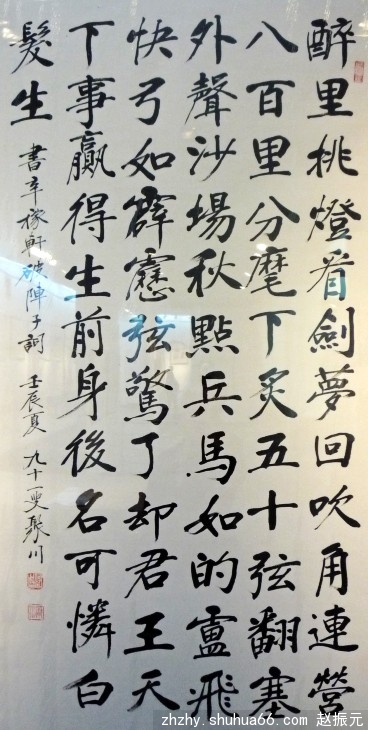 醉里挑燈看劍夢回吹角連營
八百里分麾下炙五十弦翻塞
外聲沙場秋點兵馬如的盧飛
快弓如霹靂弦驚了却君王天
下事贏得生前身後名可憐白
髮生
書辛稼軒破陣子詞 壬辰夏 九十一叟聚川
zhzhy.shuhua66.com 赵振元